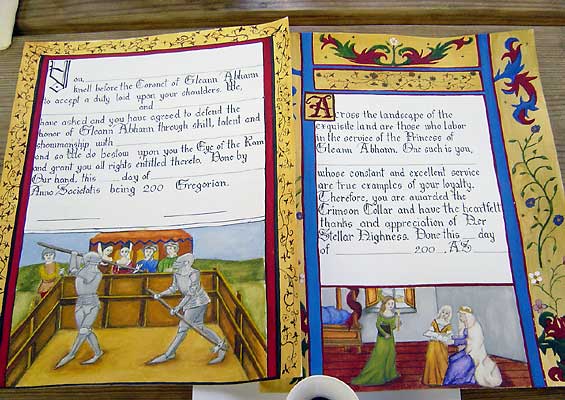 You,
knelt before the Coronet of Gleann Abhann
to accept a duty laid upon your shoulders. We,
and
have asked and you have agreed to defend the
honor of Gleann Abhann through skill, talent and
showmanship with
and so We do bestow upon you the Eye of the Ram
and grant you all rights entitled thereto. Done by
Our hand, this ___ day of
Anno Societatis being 200 Gregorian.
Across the landscape of the
exquisite land are those who labor
in the service of the Princess of
Gleann Abhann. One such is you,
whose constant and excellent service
are true examples of your loyalty.
Therefore, you are awarded the
Crimson Collar and have the heartfelt
thanks and appreciation of Her
Stellar Highness. Done this ___ day
of ___ 200 AS